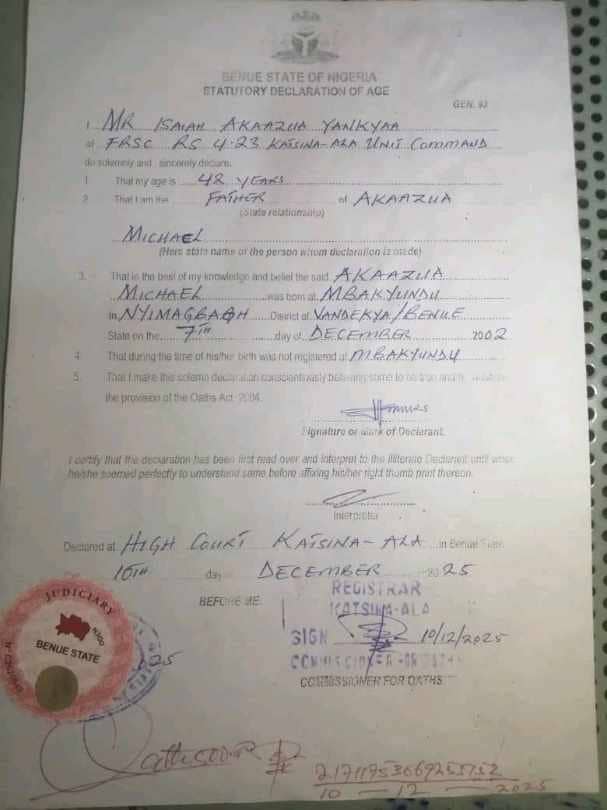 BENUE STATE OF NIGERIA
STATUTORY DECLARATION OF AGE
GEN. 93
I MR ISAIAH AKAAZUA YANKYAA
of FRSC RS 4.23 KATSINA-ALA UNIT COMMAND
do solemnly and sincerely declare.
1. That my age is 42 YEARS
2. That I am the FATHER of AKAAZUA
(State relationship)
MICHAEL
(Here state name of the person whom declaration is made)
3. That in the best of my knowledge and belief the said AKAAZUA
MICHAEL was born at MBAKYUNDU
in NYIMAGBAGH District of VANDEKYA/BENUE
State on the 7TH day of DECEMBER 2002
4. That during the time of his/her birth was not registered at MBAKYUNDU
5. That I make this solemn declaration conscientiously believing same to be true and
the provision of the Oaths Act 2004.
Signature or mark of Declarant.
I certify that the declaration has been first read over and interpret to the Illiterate Declarant until when
he/she seemed perfectly to understand same before affixing his/her right thumb print thereon.
Interpreter
Declared at HIGH COURT KATSINA-ALA in Benue State
10TH day DECEMBER 2025
BEFORE ME:
REGISTRAR
KATSINA-ALA
SIGN 10/12/2025
COMMISSIONER FOR OATHS
JUDICIARY
BENUE STATE
10 - 12 - 2025